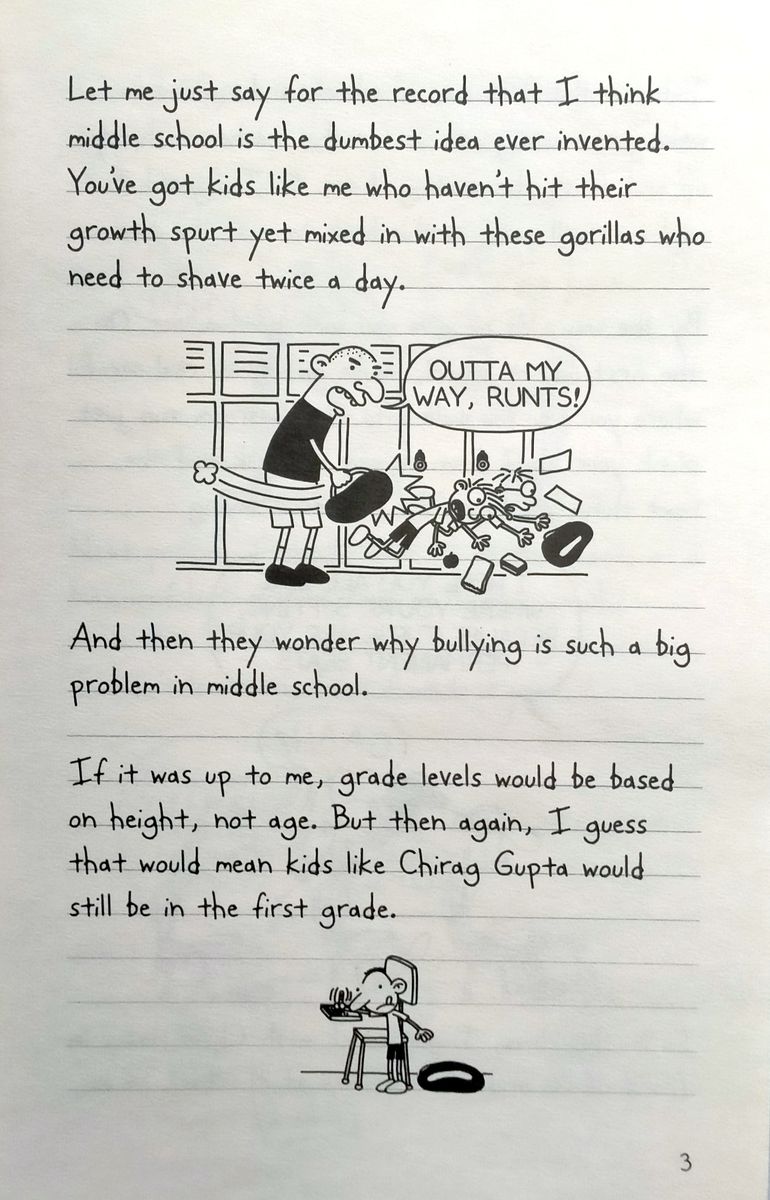 Let me just say for the record that I think
middle school is the dumbest idea ever invented.
You've got kids like me who haven't hit their
growth spurt yet mixed in with these gorillas who
need to shave twice a day.
OUTTA MY
WAY, RUNTS!
And then they wonder why bullying is such a big
problem in middle school.
If it was up to me, grade levels would be based
on height, not age. But then again, I guess
that would mean kids like Chirag Gupta would
still be in the first grade.
3